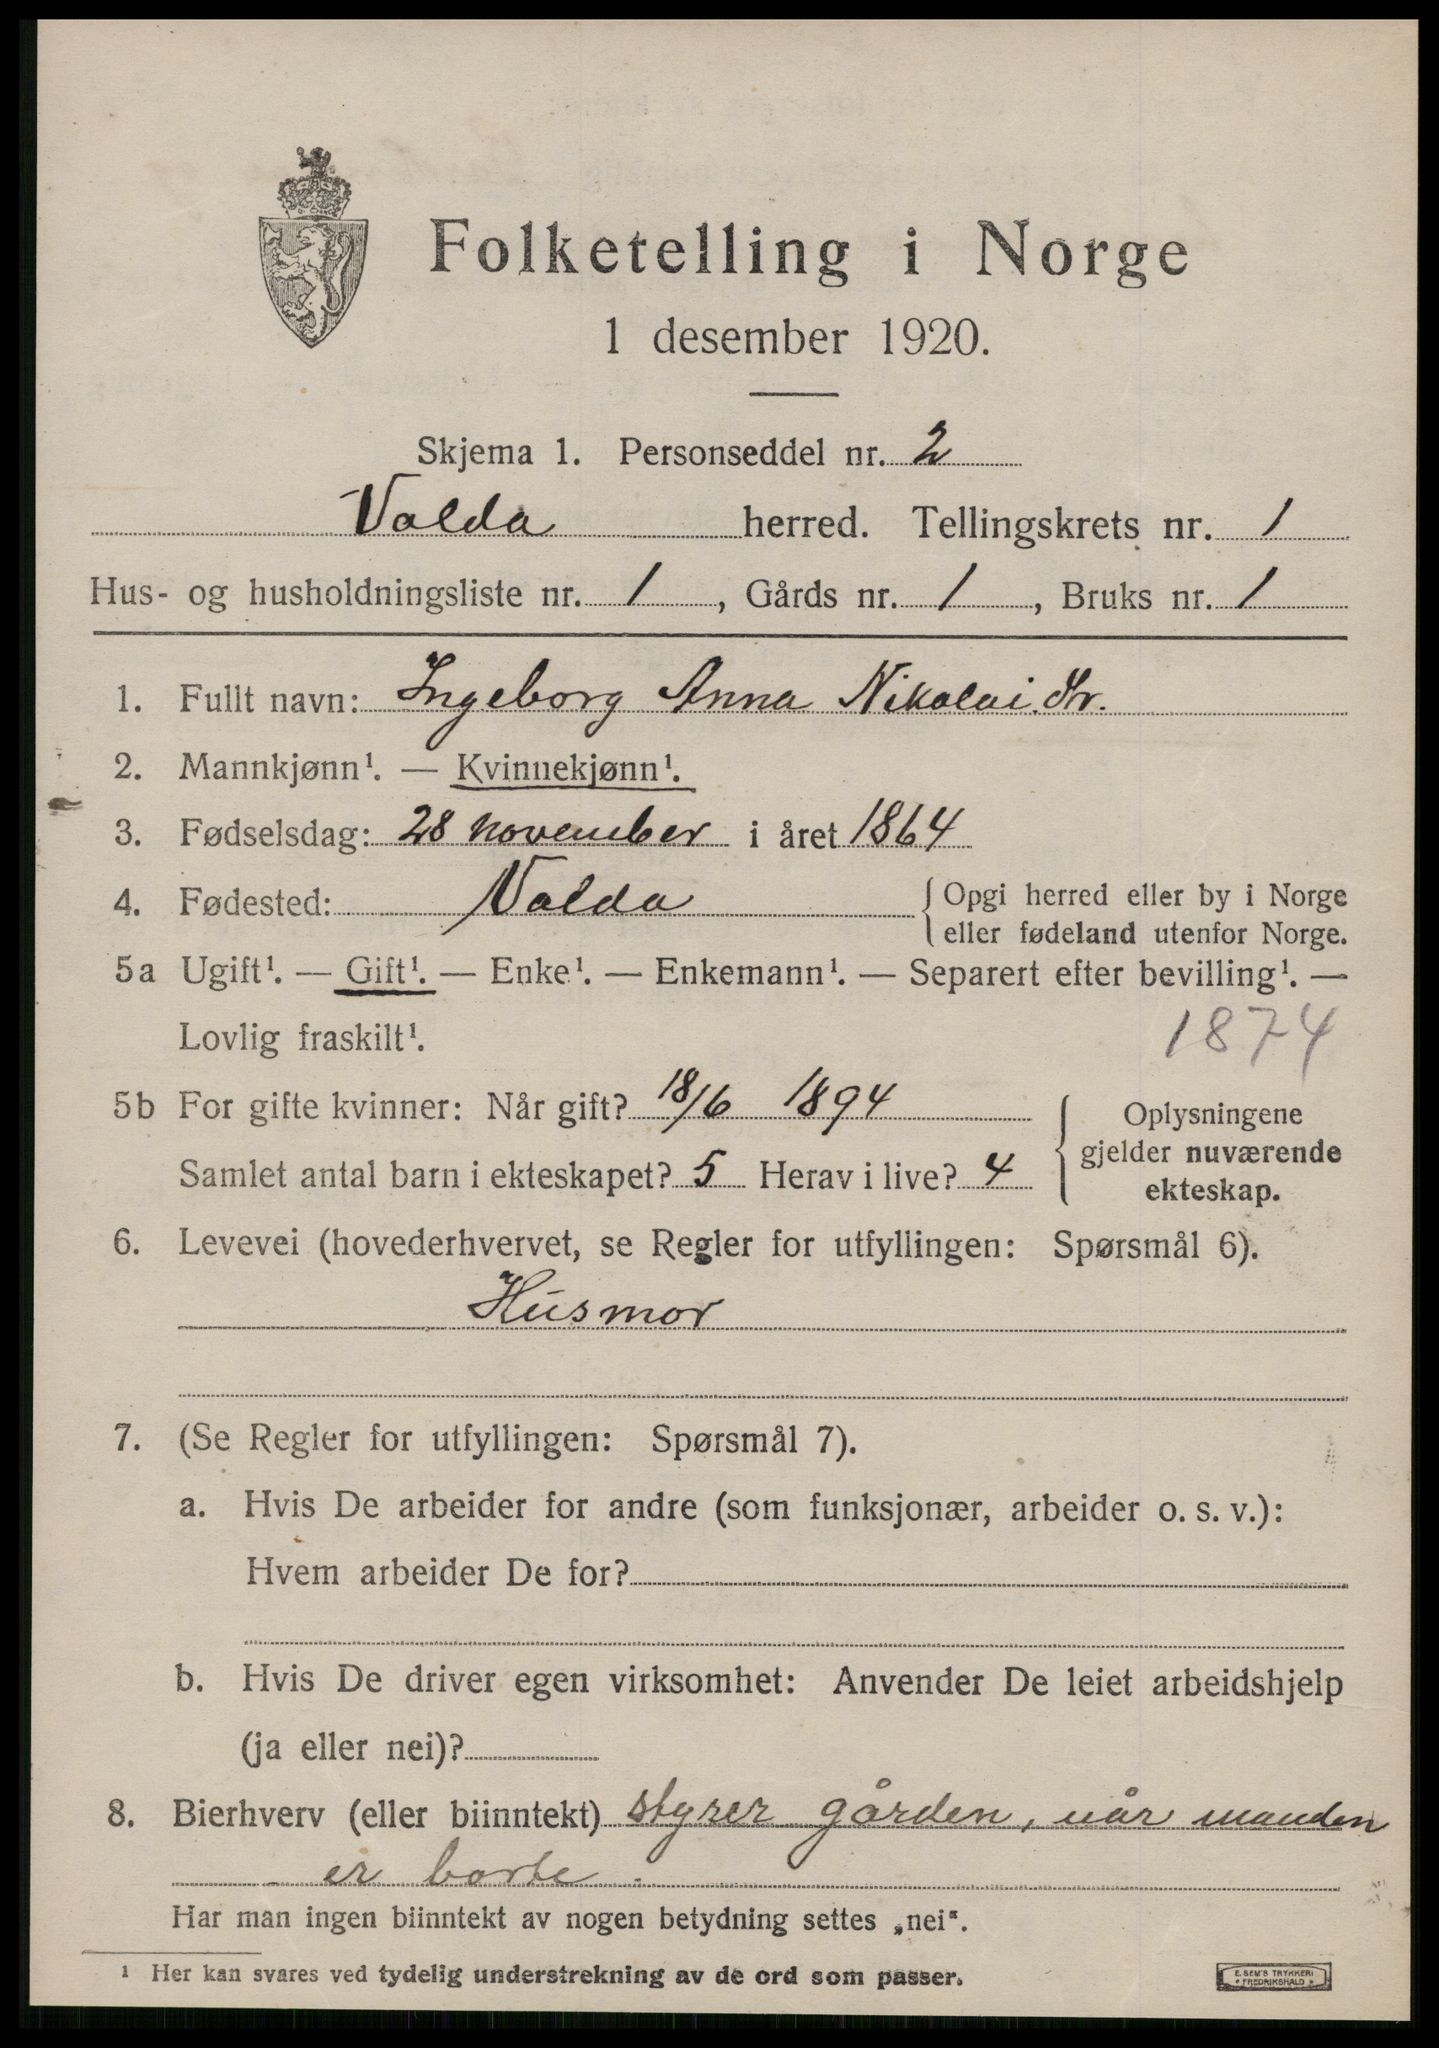 Folketelling i Norge
1 desember 1920.
Skjema 1. Personseddel nr. 2
Valda herred. Tellingskrets nr. 1
Hus- og husholdningsliste nr. 1, Gårds nr. 1, Bruks nr. 1
1. Fullt navn: Ingeborg Anna Nikolai.dtr.
2. Mannkjønn¹. — Kvinnekjønn¹.
3. Fødselsdag: 28 november i året 1864
4. Fødested: Valda { Opgi herred eller by i Norge
eller fødeland utenfor Norge.
5a Ugift¹. — Gift¹. — Enke¹. — Enkemann¹. — Separert efter bevilling¹. —
Lovlig fraskilt¹. 1874
5b For gifte kvinner: Når gift? 18/6 1894 Oplysningene
gjelder nuværende
Samlet antal barn i ekteskapet? 5 Herav i live? 4 ekteskap.
6. Levevei (hovederhvervet, se Regler for utfyllingen: Spørsmål 6).
Husmor
7. (Se Regler for utfyllingen: Spørsmål 7).
a. Hvis De arbeider for andre (som funksjonær, arbeider o. s. v.):
Hvem arbeider De for?
b. Hvis De driver egen virksomhet: Anvender De leiet arbeidshjelp
(ja eller nei)?
8. Bierhverv (eller biinntekt) styrer gården, når manden
er borte.
Har man ingen biinntekt av nogen betydning settes „nei“.
¹ Her kan svares ved tydelig understrekning av de ord som passer.
E. SEM'S TRYKKERI
FREDRIKSHALD